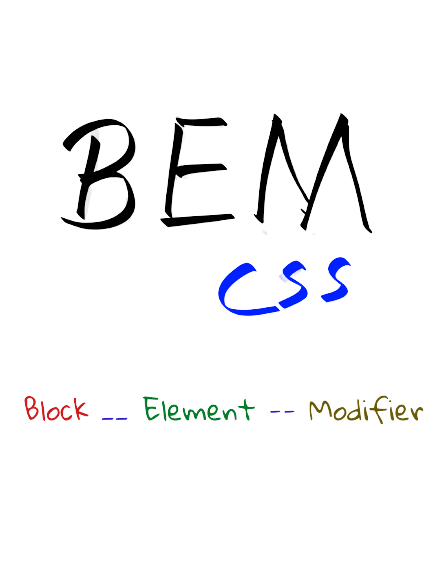 BEM
CSS
Block __ Element -- Modifier